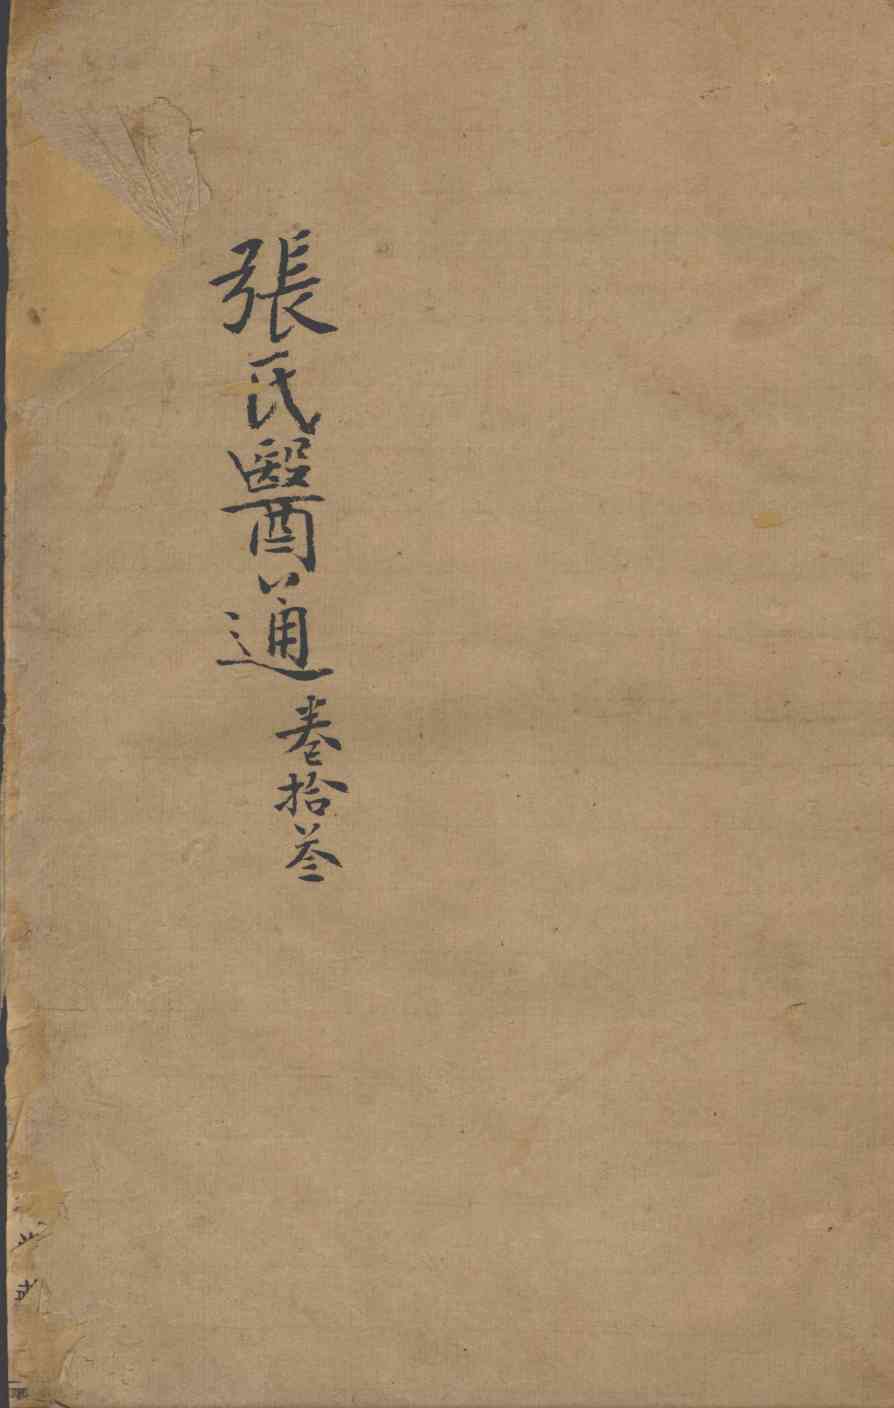 張氏醫通卷拾叁